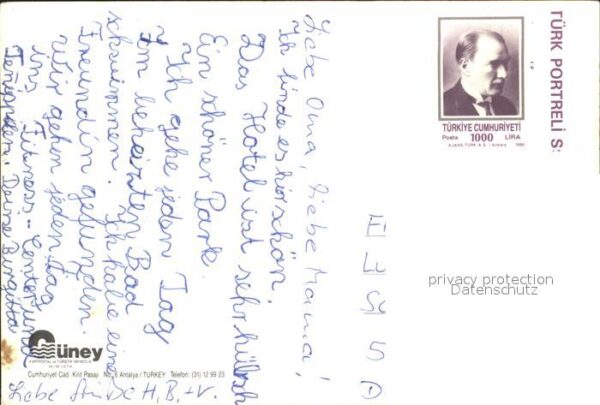 Liebe Oma, liebe Mama!
Ich finde es hier schön,
Das Hotel ist sehr hübsch
Ein schöner Park.
Ich gehe jeden Tag
Im beheizten Bad
schwimmen. Ich habe eine
Freundin gefunden.
Wir gehen jeden Tag
ins Fitness-Center und
Deine Birgitta
Liebe Grüße H, B, + V.
TÜRK PORTRELİ S:
TÜRKİYE CUMHURİYETİ
Posta 1000 LİRA
AJANS-TÜRK A.Ş. / Ankara 1990
privacy protection
Datenschutz
Güney
KARTPOSTAL ve TURİSTİK YAYINCILIK
Cumhuriyet Cad. Kild Pasajı No. 6 Antalya / TURKEY Telefon: (31) 12 99 23